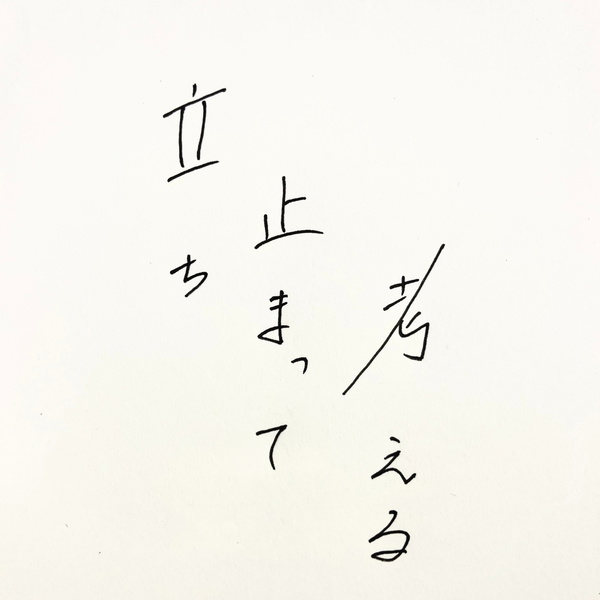 立ち
止まって
考える